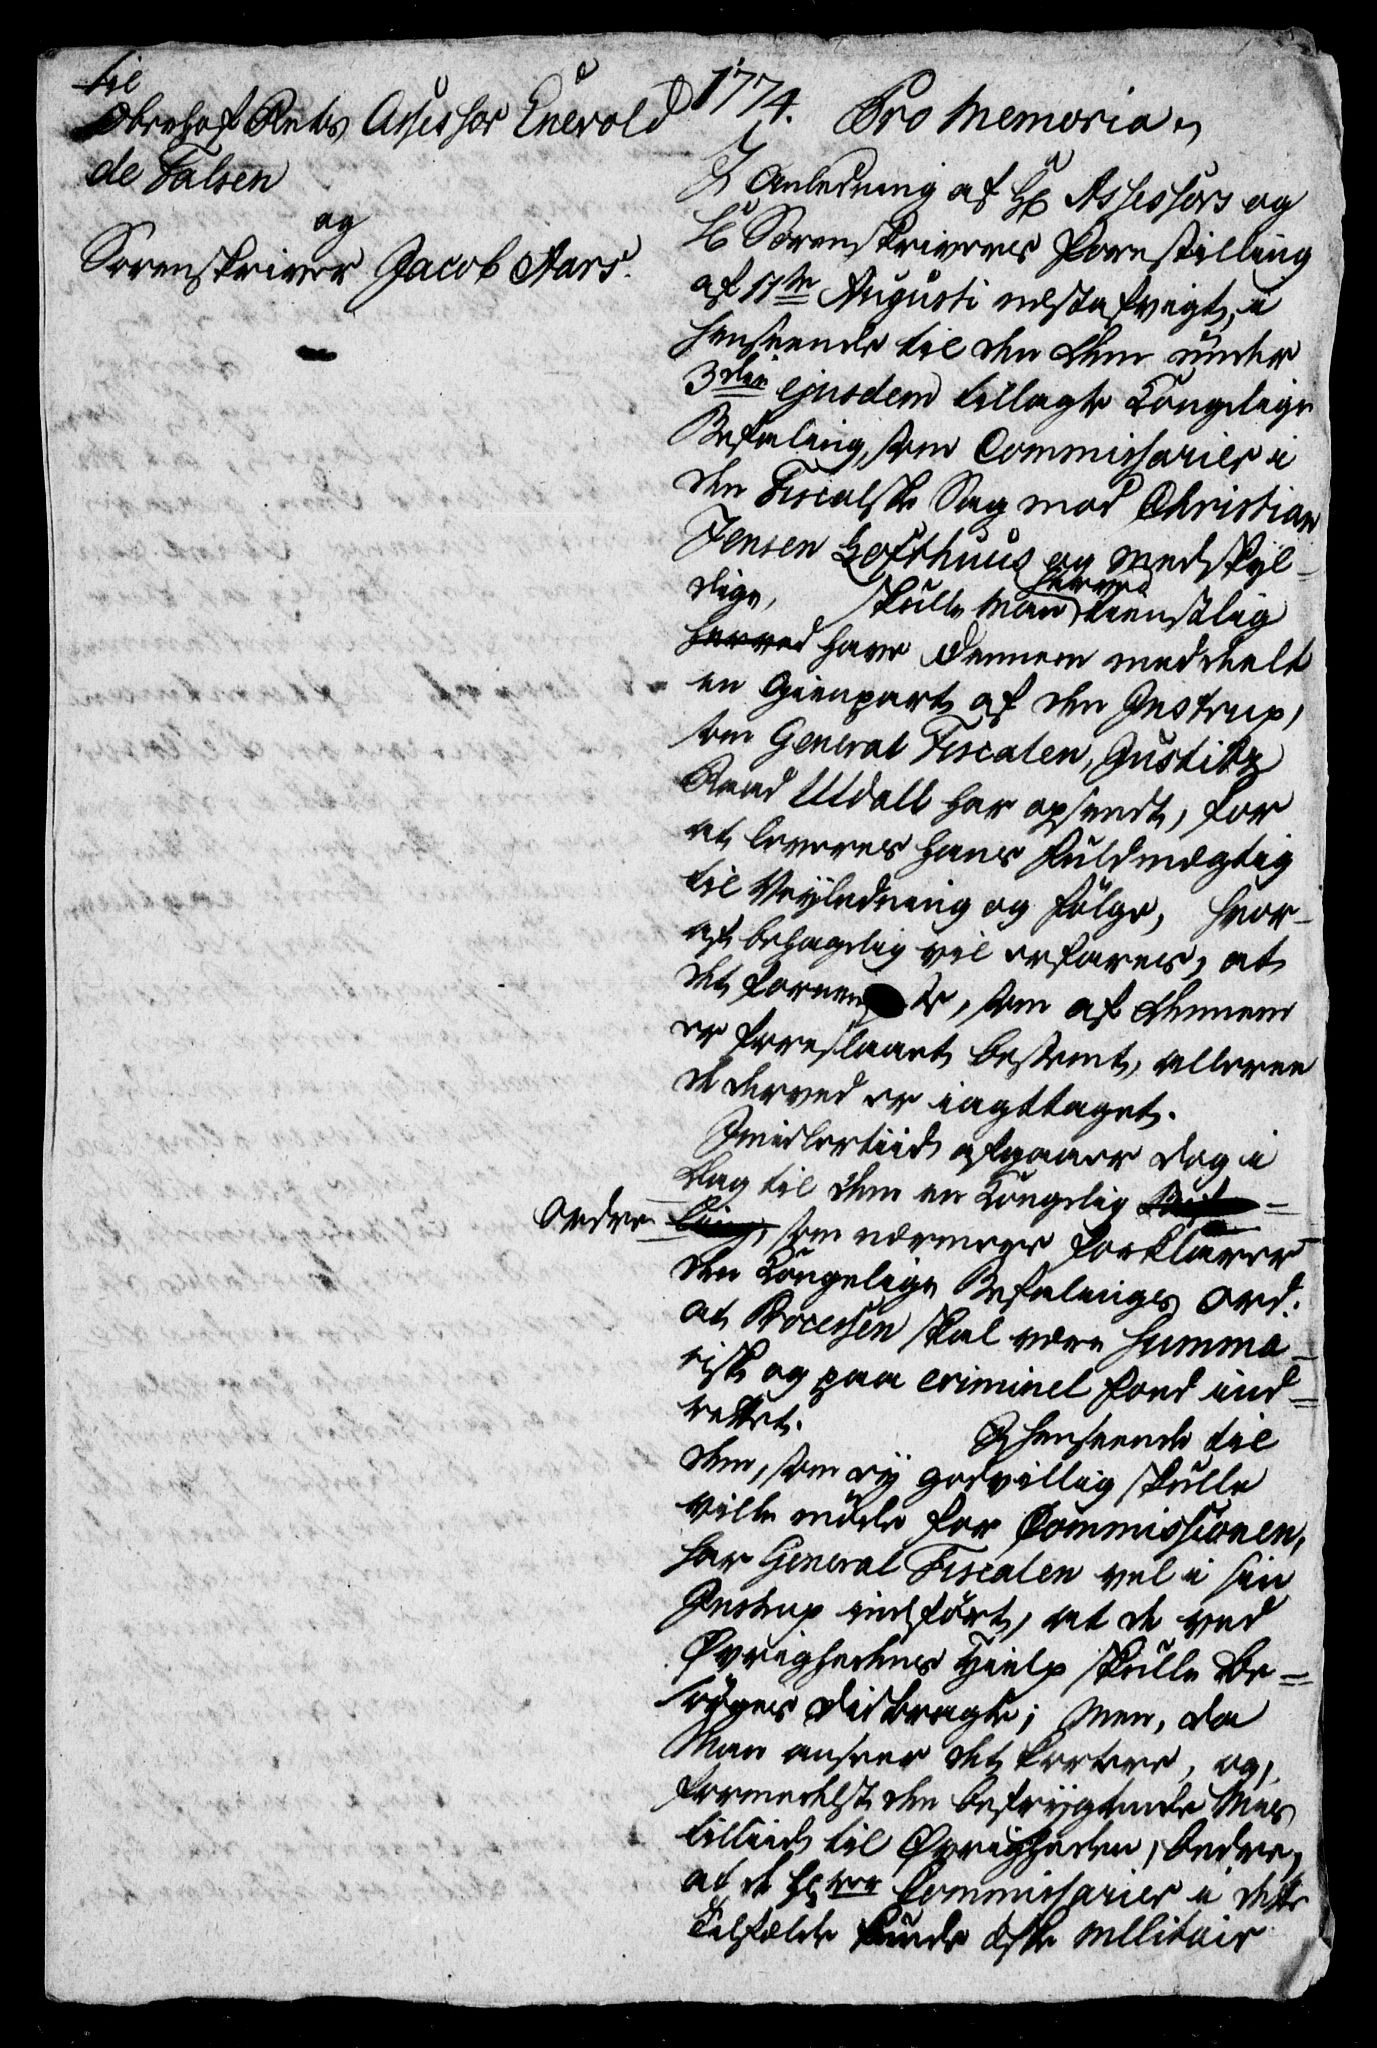 Til
Oberhof Retts Assessor Enevold
de Falsen
og
Sorenskriver Jacob Aars.
1774. Pro Memoria
I Anledning af Hr Assessors og
Hr Sorenskriverens Forestilling
af 11te Augusti næstafvigt, i
henseende til den dem under
3die ejusdem tillagte Kongelige
Befaling, som Commissarier i
den Fiscalske Sag mod Christian
Jensen Lofthuus og medskyl-
dige, skulle man herved tienstlig
herved have Dennem meddeelt
en Gienpart af den Instrux,
som General Fiscalen, Justitz
Raad Uldall har opsendt, for
at leveres hans Fuldmægtig
til Veyledning og Følge, hvor-
af behagelig vil erfares, at
det fornemste, som af dennem
er foreslaaet bestemt, alleree
de derved er iagttaget.
Imidlertiid afgaaer dog i
Dag til dem en Kongelig
Ordre som nærmere forklarer
den Kongelige Befalings Ord:
at Processen skal være summa-
risk og paa criminel Fod ind-
rettet. I henseende til
dem, som ey godvillig skulle
ville møde for Commissionen,
har General Fiscalen vel i sin
Instrux indført, at de ved
Øvrighedens Hielp skulle be-
søges didbragte; Men, da
Man anseer det kortere, og,
formedelst den befrygtende Mis
tilliid til Øvrigheden, bedre,
at de Hrrer Commissarier i dette
Tilfælde kunde æske Militair